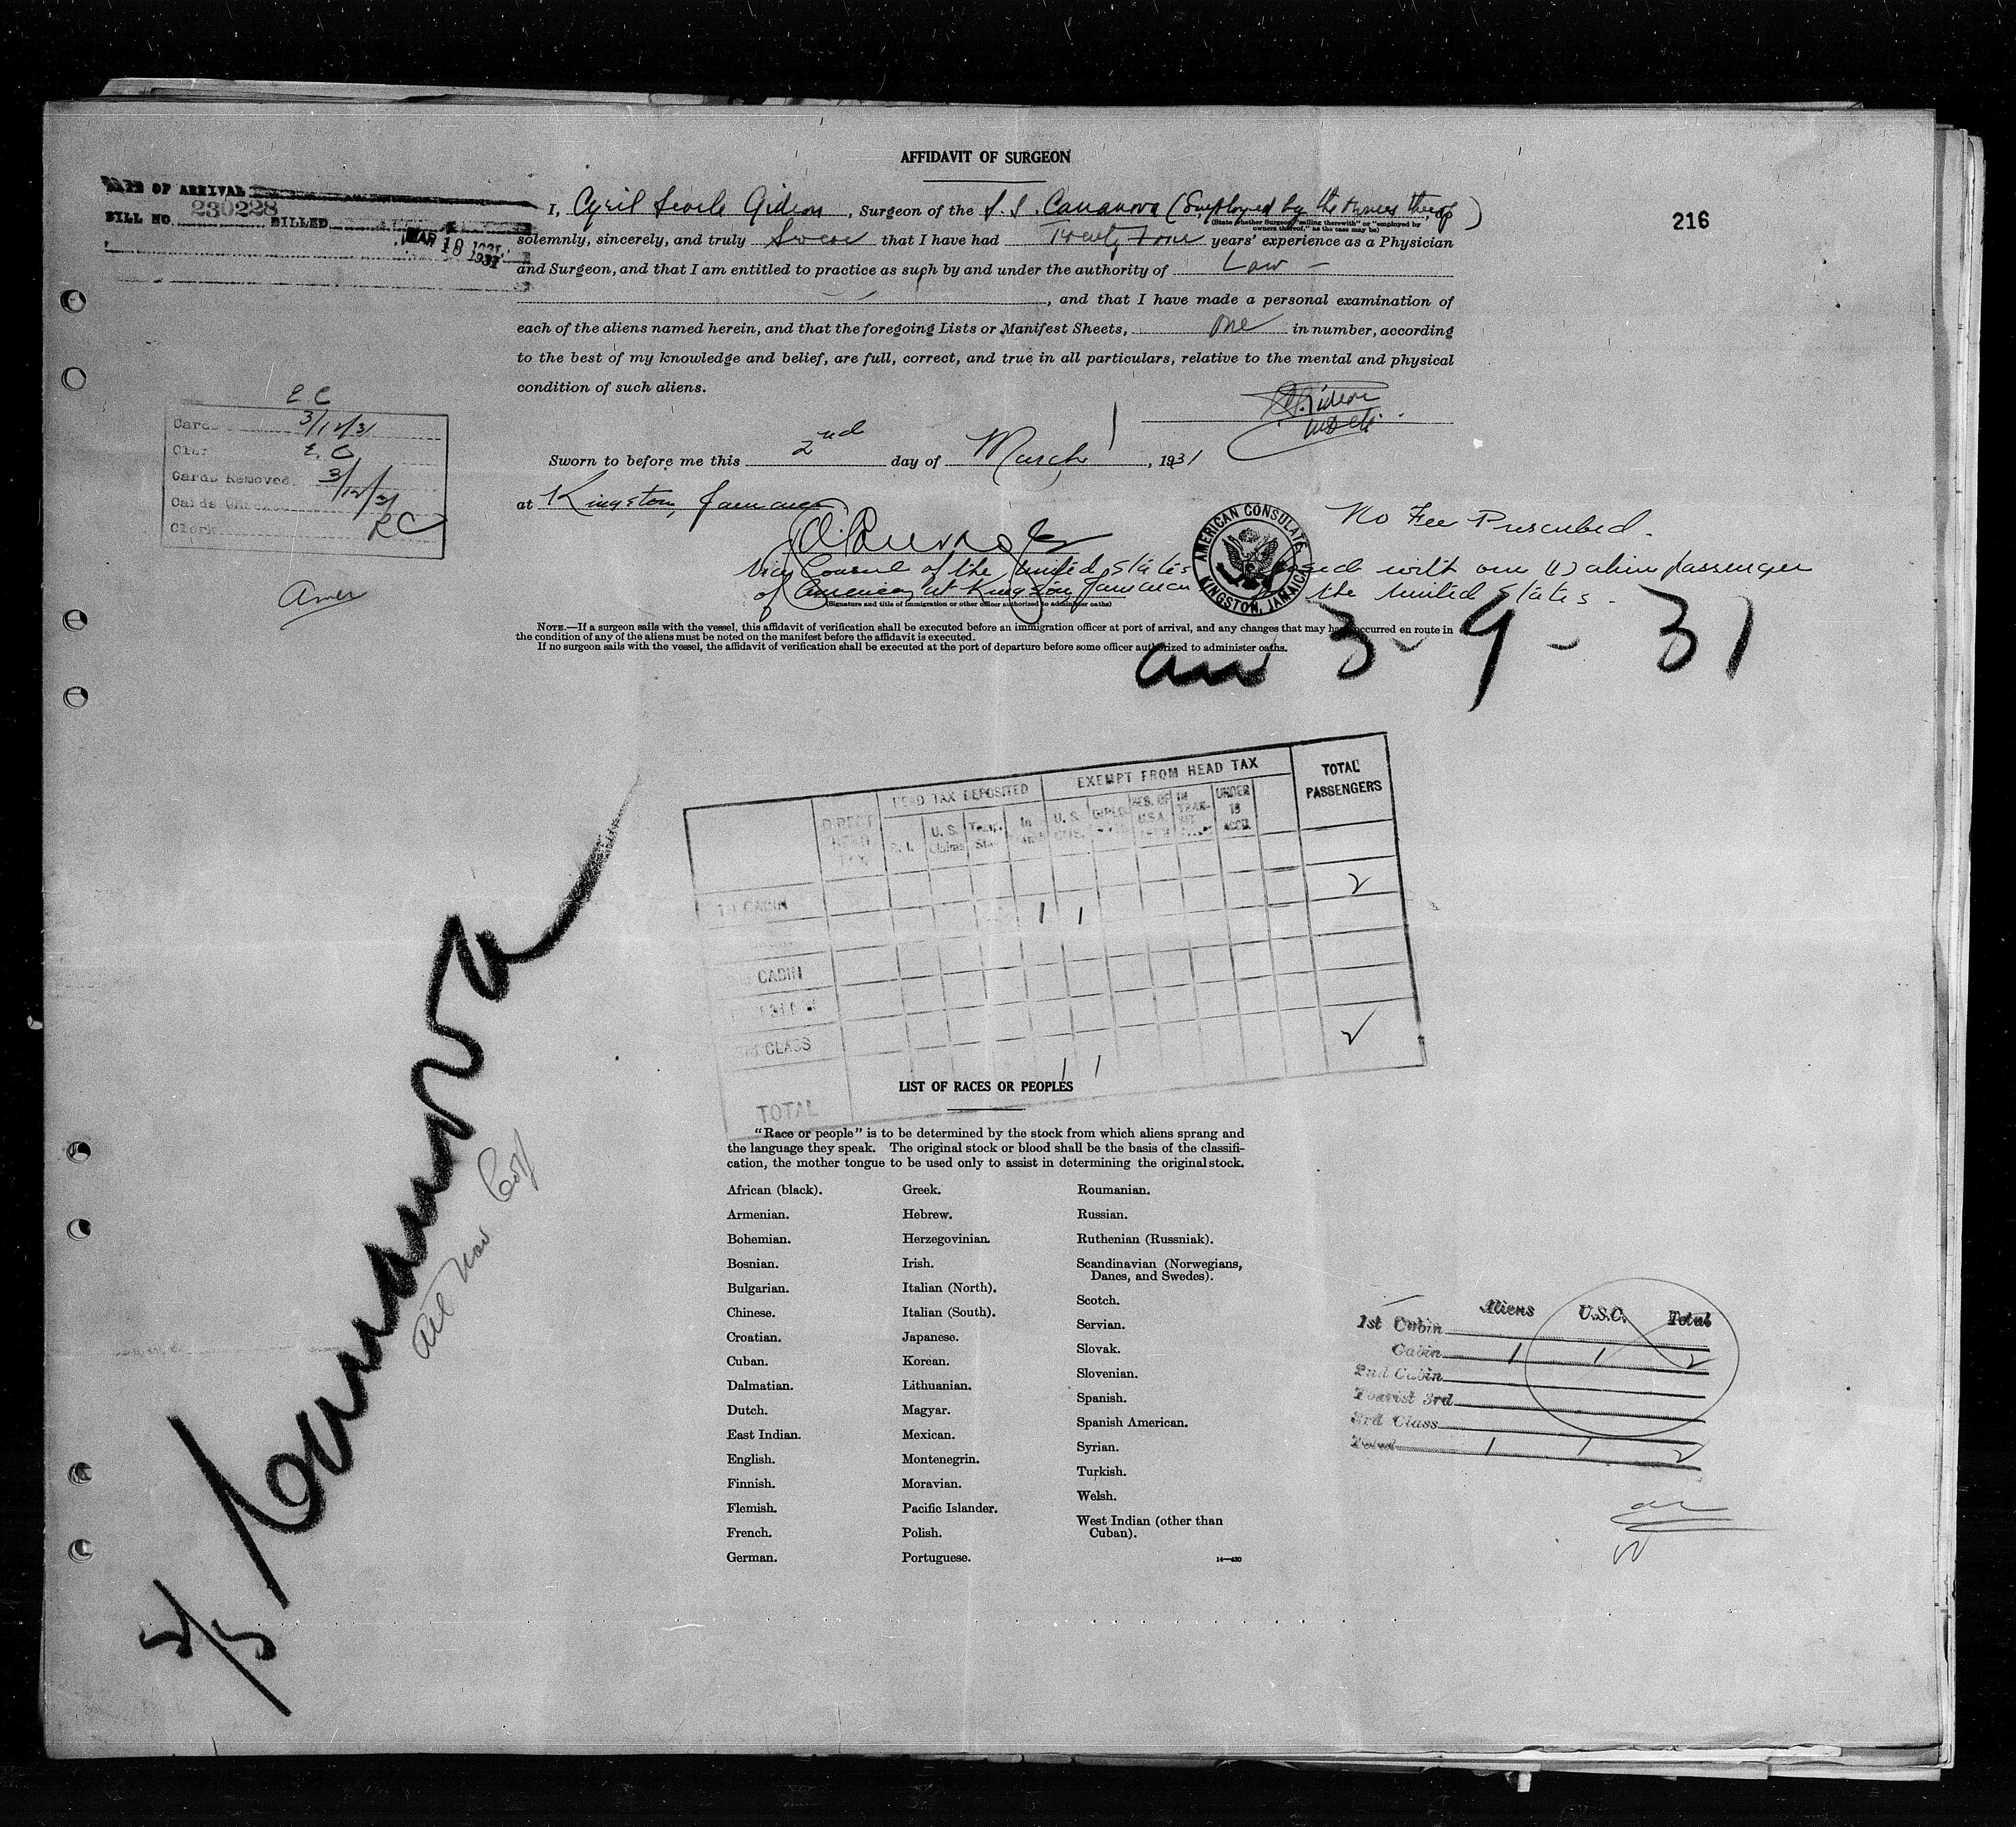 AFFIDAVIT OF SURGEON
DATE OF ARRIVAL
BILL NO. 230228 BILLED
MAR 18 1931
216
I, Cyril Gideon, Surgeon of the S. S. Cananova (Employed by the Owners thereof)
(State whether Surgeon "sailing therewith" or "employed by owners thereof," as the case may be)
solemnly, sincerely, and truly Swear that I have had Twenty one years' experience as a Physician
and Surgeon, and that I am entitled to practice as such by and under the authority of Law —
, and that I have made a personal examination of
each of the aliens named herein, and that the foregoing Lists or Manifest Sheets, One in number, according
to the best of my knowledge and belief, are full, correct, and true in all particulars, relative to the mental and physical
condition of such aliens.
Gideon
Sworn to before me this 2nd day of March, 1931
at Kingston, Jamaica
Vice Consul of the United States
of America at Kingston, Jamaica
(Signature and title of immigration or other officer authorized to administer oaths)
AMERICAN CONSULATE
KINGSTON, JAMAICA
No Fee Prescribed.
with one (1) alien passenger
the United States.
E C
3/12/31
E. C
Cards Removed 3/12/31
Clerk RC
NOTE.—If a surgeon sails with the vessel, this affidavit of verification shall be executed before an immigration officer at port of arrival, and any changes that may have occurred en route in
the condition of any of the aliens must be noted on the manifest before the affidavit is executed.
If no surgeon sails with the vessel, the affidavit of verification shall be executed at the port of departure before some officer authorized to administer oaths.
3-9-31
DIRECT HEAD TAX
HEAD TAX DEPOSITED
EXEMPT FROM HEAD TAX
TOTAL PASSENGERS
U. S. Claims
U. S.
UNDER 16 ACCO.
CABIN 1 1 2
CABIN
CLASS
TOTAL 1 1 2
S/S Cananova
LIST OF RACES OR PEOPLES
"Race or people" is to be determined by the stock from which aliens sprang and
the language they speak. The original stock or blood shall be the basis of the classifi-
cation, the mother tongue to be used only to assist in determining the original stock.
African (black).
Armenian.
Bohemian.
Bosnian.
Bulgarian.
Chinese.
Croatian.
Cuban.
Dalmatian.
Dutch.
East Indian.
English.
Finnish.
Flemish.
French.
German.
Greek.
Hebrew.
Herzegovinian.
Irish.
Italian (North).
Italian (South).
Japanese.
Korean.
Lithuanian.
Magyar.
Mexican.
Montenegrin.
Moravian.
Pacific Islander.
Polish.
Portuguese.
Roumanian.
Russian.
Ruthenian (Russniak).
Scandinavian (Norwegians,
Danes, and Swedes).
Scotch.
Servian.
Slovak.
Slovenian.
Spanish.
Spanish American.
Syrian.
Turkish.
Welsh.
West Indian (other than
Cuban).
14—430
Aliens U.S.C. Total
1st Cabin
Cabin 1 1 2
2nd Cabin
Tourist 3rd
3rd Class
Total 1 1 2